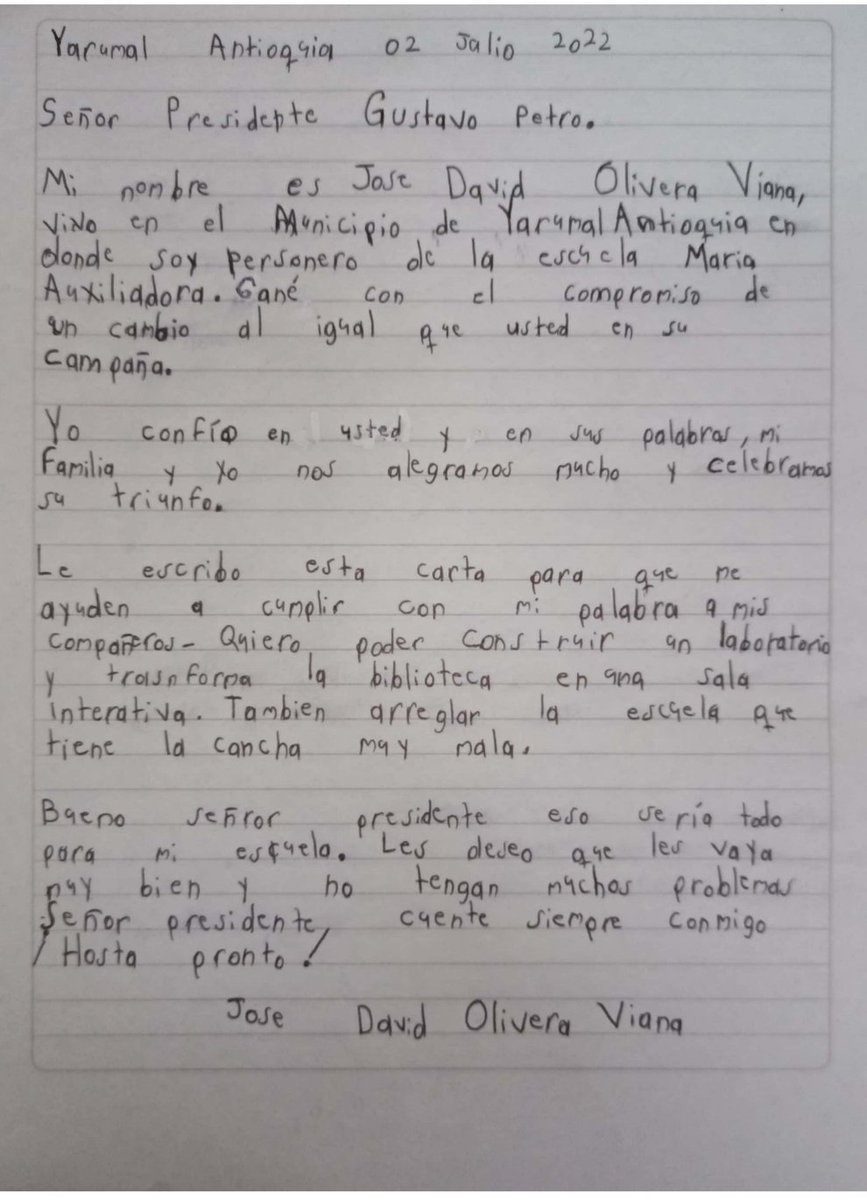 Yarumal Antioquia 02 Julio 2022
Señor Presidente Gustavo Petro.
Mi nombre es Jose David Olivera Viana,
vivo en el Municipio de Yarumal Antioquia en
donde soy personero de la escuela Maria
Auxiliadora. Gané con el compromiso de
un cambio al igual que usted en su
campaña.
Yo confío en usted y en sus palabras, mi
familia y yo nos alegramos mucho y celebramos
su triunfo.
Le escribo esta carta para que me
ayuden a cumplir con mi palabra a mis
compañeros- Quiero poder construir un laboratorio
y trasnforma la biblioteca en una sala
interativa. Tambien arreglar la escuela que
tiene la cancha muy mala.
Bueno señror presidente eso sería todo
para mi escuela. Les deseo que les vaya
muy bien y no tengan muchos problemas
Señor presidente, cuente siempre conmigo
¡Hasta pronto!
Jose David Olivera Viana